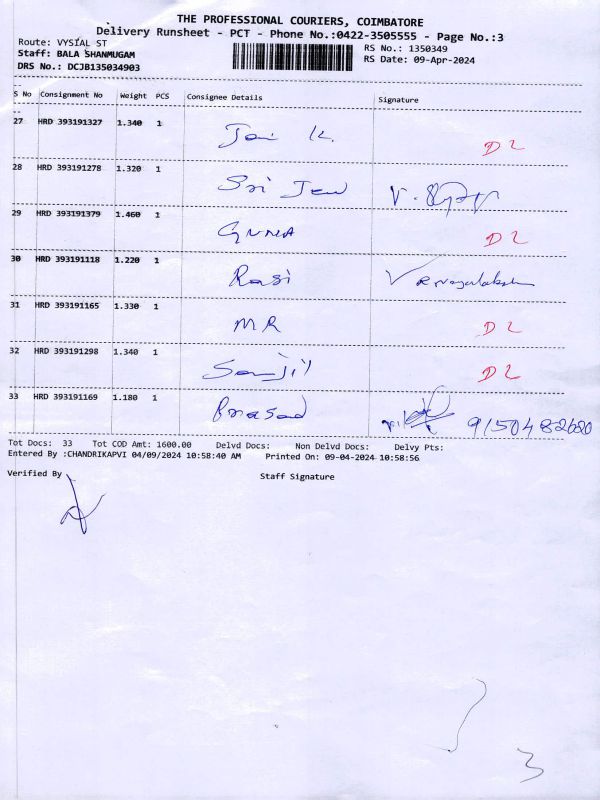 THE PROFESSIONAL COURIERS, COIMBATORE
Delivery Runsheet - PCT - Phone No.:0422-3505555 - Page No.:3
Route: VYSIAL ST
RS No.: 1350349
Staff: BALA SHANMUGAM
RS Date: 09-Apr-2024
DRS No.: DCJB135034903
S No Consignment No Weight PCS Consignee Details Signature
27 HRD 393191327 1.340 1 Jai K. D2
28 HRD 393191278 1.320 1 Sri Jew
29 HRD 393191379 1.460 1 GUNA D2
30 HRD 393191118 1.220 1 Rasi
31 HRD 393191165 1.330 1 MR D2
32 HRD 393191298 1.340 1 D2
33 HRD 393191169 1.180 1 Prasad 9150482620
Tot Docs: 33 Tot COD Amt: 1600.00 Delvd Docs: Non Delvd Docs: Delvy Pts:
Entered By :CHANDRIKAPVI 04/09/2024 10:58:40 AM Printed On: 09-04-2024 10:58:56
Verified By Staff Signature
3